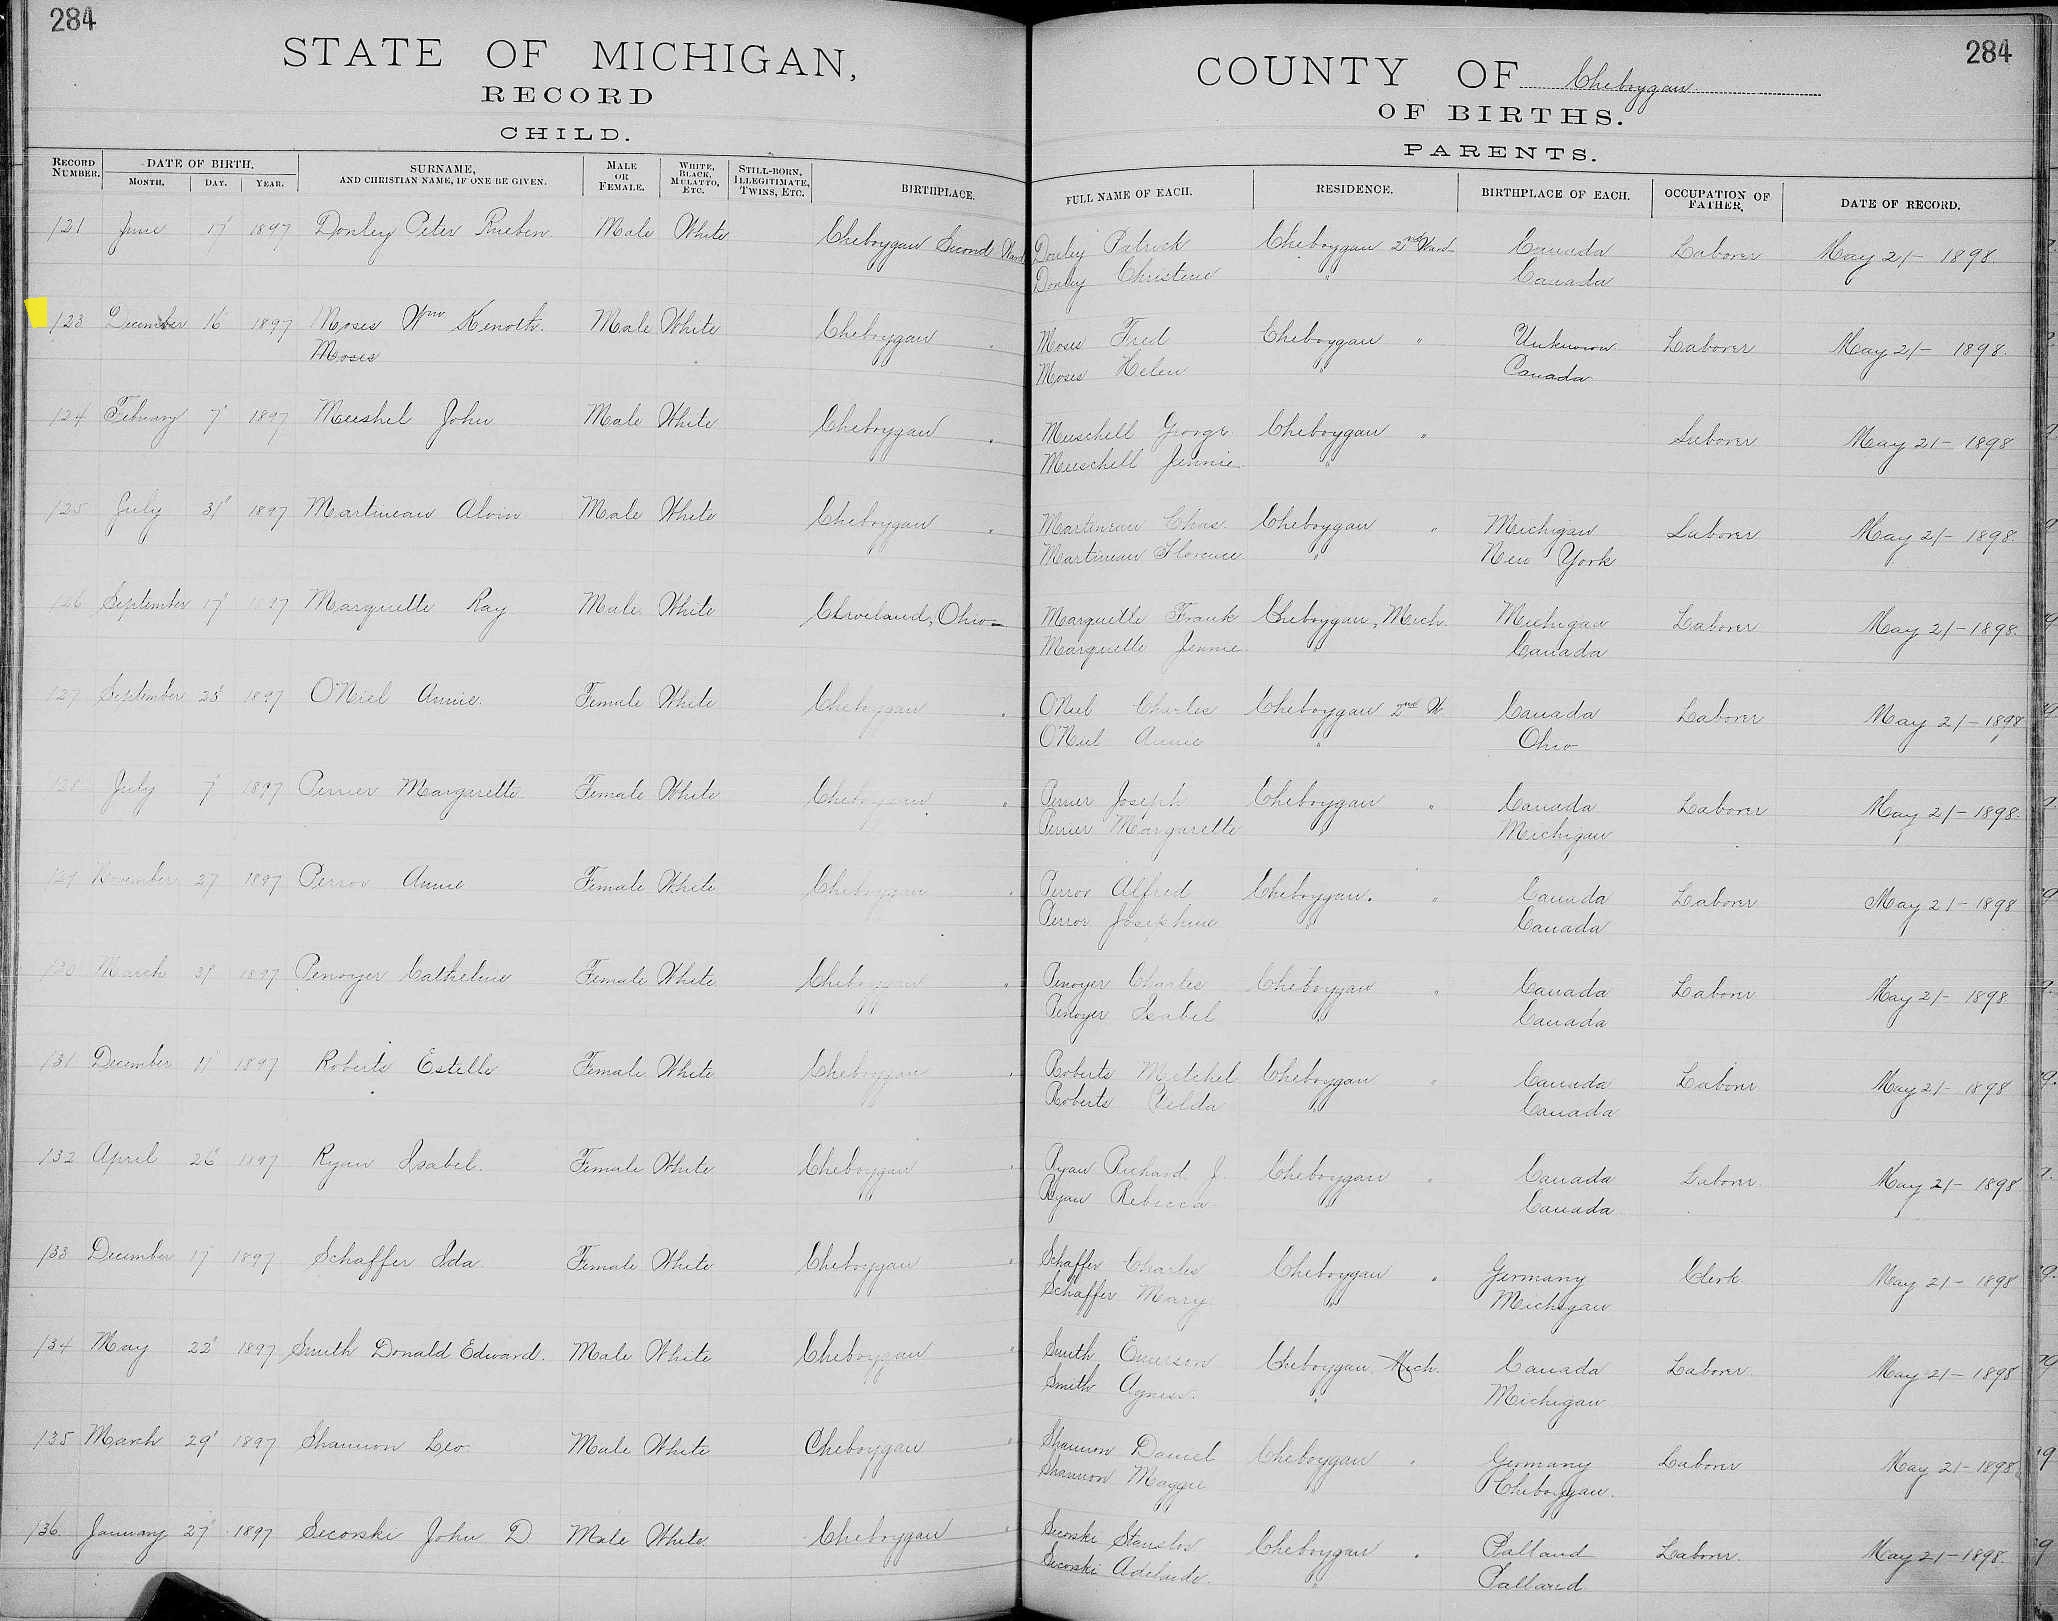 284
STATE OF MICHIGAN,
RECORD
CHILD.
284
COUNTY OF Cheboygan
OF BIRTHS.
PARENTS.
RECORD NUMBER. DATE OF BIRTH. MONTH. DAY. YEAR. SURNAME, AND CHRISTIAN NAME, IF ONE BE GIVEN. MALE OR FEMALE. WHITE, BLACK, MULATTO, ETC. STILL-BORN, ILLEGITIMATE, TWINS, ETC. BIRTHPLACE. FULL NAME OF EACH. RESIDENCE. BIRTHPLACE OF EACH. OCCUPATION OF FATHER, DATE OF RECORD.
121 June 17 1897 Donley Peter Rueben Male White Cheboygan Second Ward Donley Patrick Cheboygan 2nd Ward Canada Laborer May 21- 1898
Donley Christene " Canada
123 December 16 1897 Moses Wm Kenoth. Male White Cheboygan " Moses Fred Cheboygan " Unknown Laborer May 21- 1898.
Moses Moses Helen " Canada
124 February 7 1897 Meeshel John Male White Cheboygan " Meeschell George Cheboygan " Laborer May 21- 1898
Meeschell Jennie "
125 July 31 1897 Martineau Alvin Male White Cheboygan " Martineau Chas. Cheboygan " Michigan Laborer May 21- 1898.
Martineau Florence " New York
126 September 17 1897 Marquette Ray Male White Cleveland, Ohio Marquette Frank Cheboygan, Mich. Michigan Laborer May 21- 1898.
Marquette Jennie " Canada
127 September 23 1897 O'Niel Annie. Female White Cheboygan " O'Niel Charles Cheboygan 2nd W Canada Laborer May 21- 1898
O'Niel Annie " Ohio
128 July 7 1897 Perrier Margarette Female White Cheboygan " Perrier Joseph Cheboygan " Canada Laborer May 21- 1898.
Perrier Margarette " Michigan
129 November 27 1897 Perror Annie Female White Cheboygan " Perror Alfred Cheboygan. " Canada Laborer May 21- 1898
Perror Josephine " Canada
130 March 31 1897 Penoyer Catheline Female White Cheboygan " Penoyer Charles Cheboygan " Canada Laborer May 21- 1898.
Penoyer Isabel " Canada
131 December 11 1897 Roberts Estelle Female White Cheboygan " Roberts Mitchel Cheboygan " Canada Laborer May 21- 1898
Roberts Zelda " Canada
132 April 26 1897 Ryan Isabel. Female White Cheboygan " Ryan Richard J. Cheboygan " Canada Laborer May 21- 1898
Ryan Rebecca " Canada
133 December 17 1897 Schaffer Ida Female White Cheboygan " Schaffer Charles Cheboygan " Germany Clerk May 21- 1898
Schaffer Mary " Michigan
134 May 22 1897 Smith Donald Edward. Male White Cheboygan " Smith Emerson Cheboygan, Mich. Canada Laborer. May 21- 1898
Smith Agness. " Michigan
135 March 29 1897 Shannon Leo Male White Cheboygan " Shannon Daniel Cheboygan " Germany Laborer May 21- 1898
Shannon Maggie " Cheboygan.
136 January 27 1897 Secorski John D Male White. Cheboygan " Secorski Stanslos Cheboygan " Palland Laborer. May 21- 1898.
Secorski Adelaide. " Palland